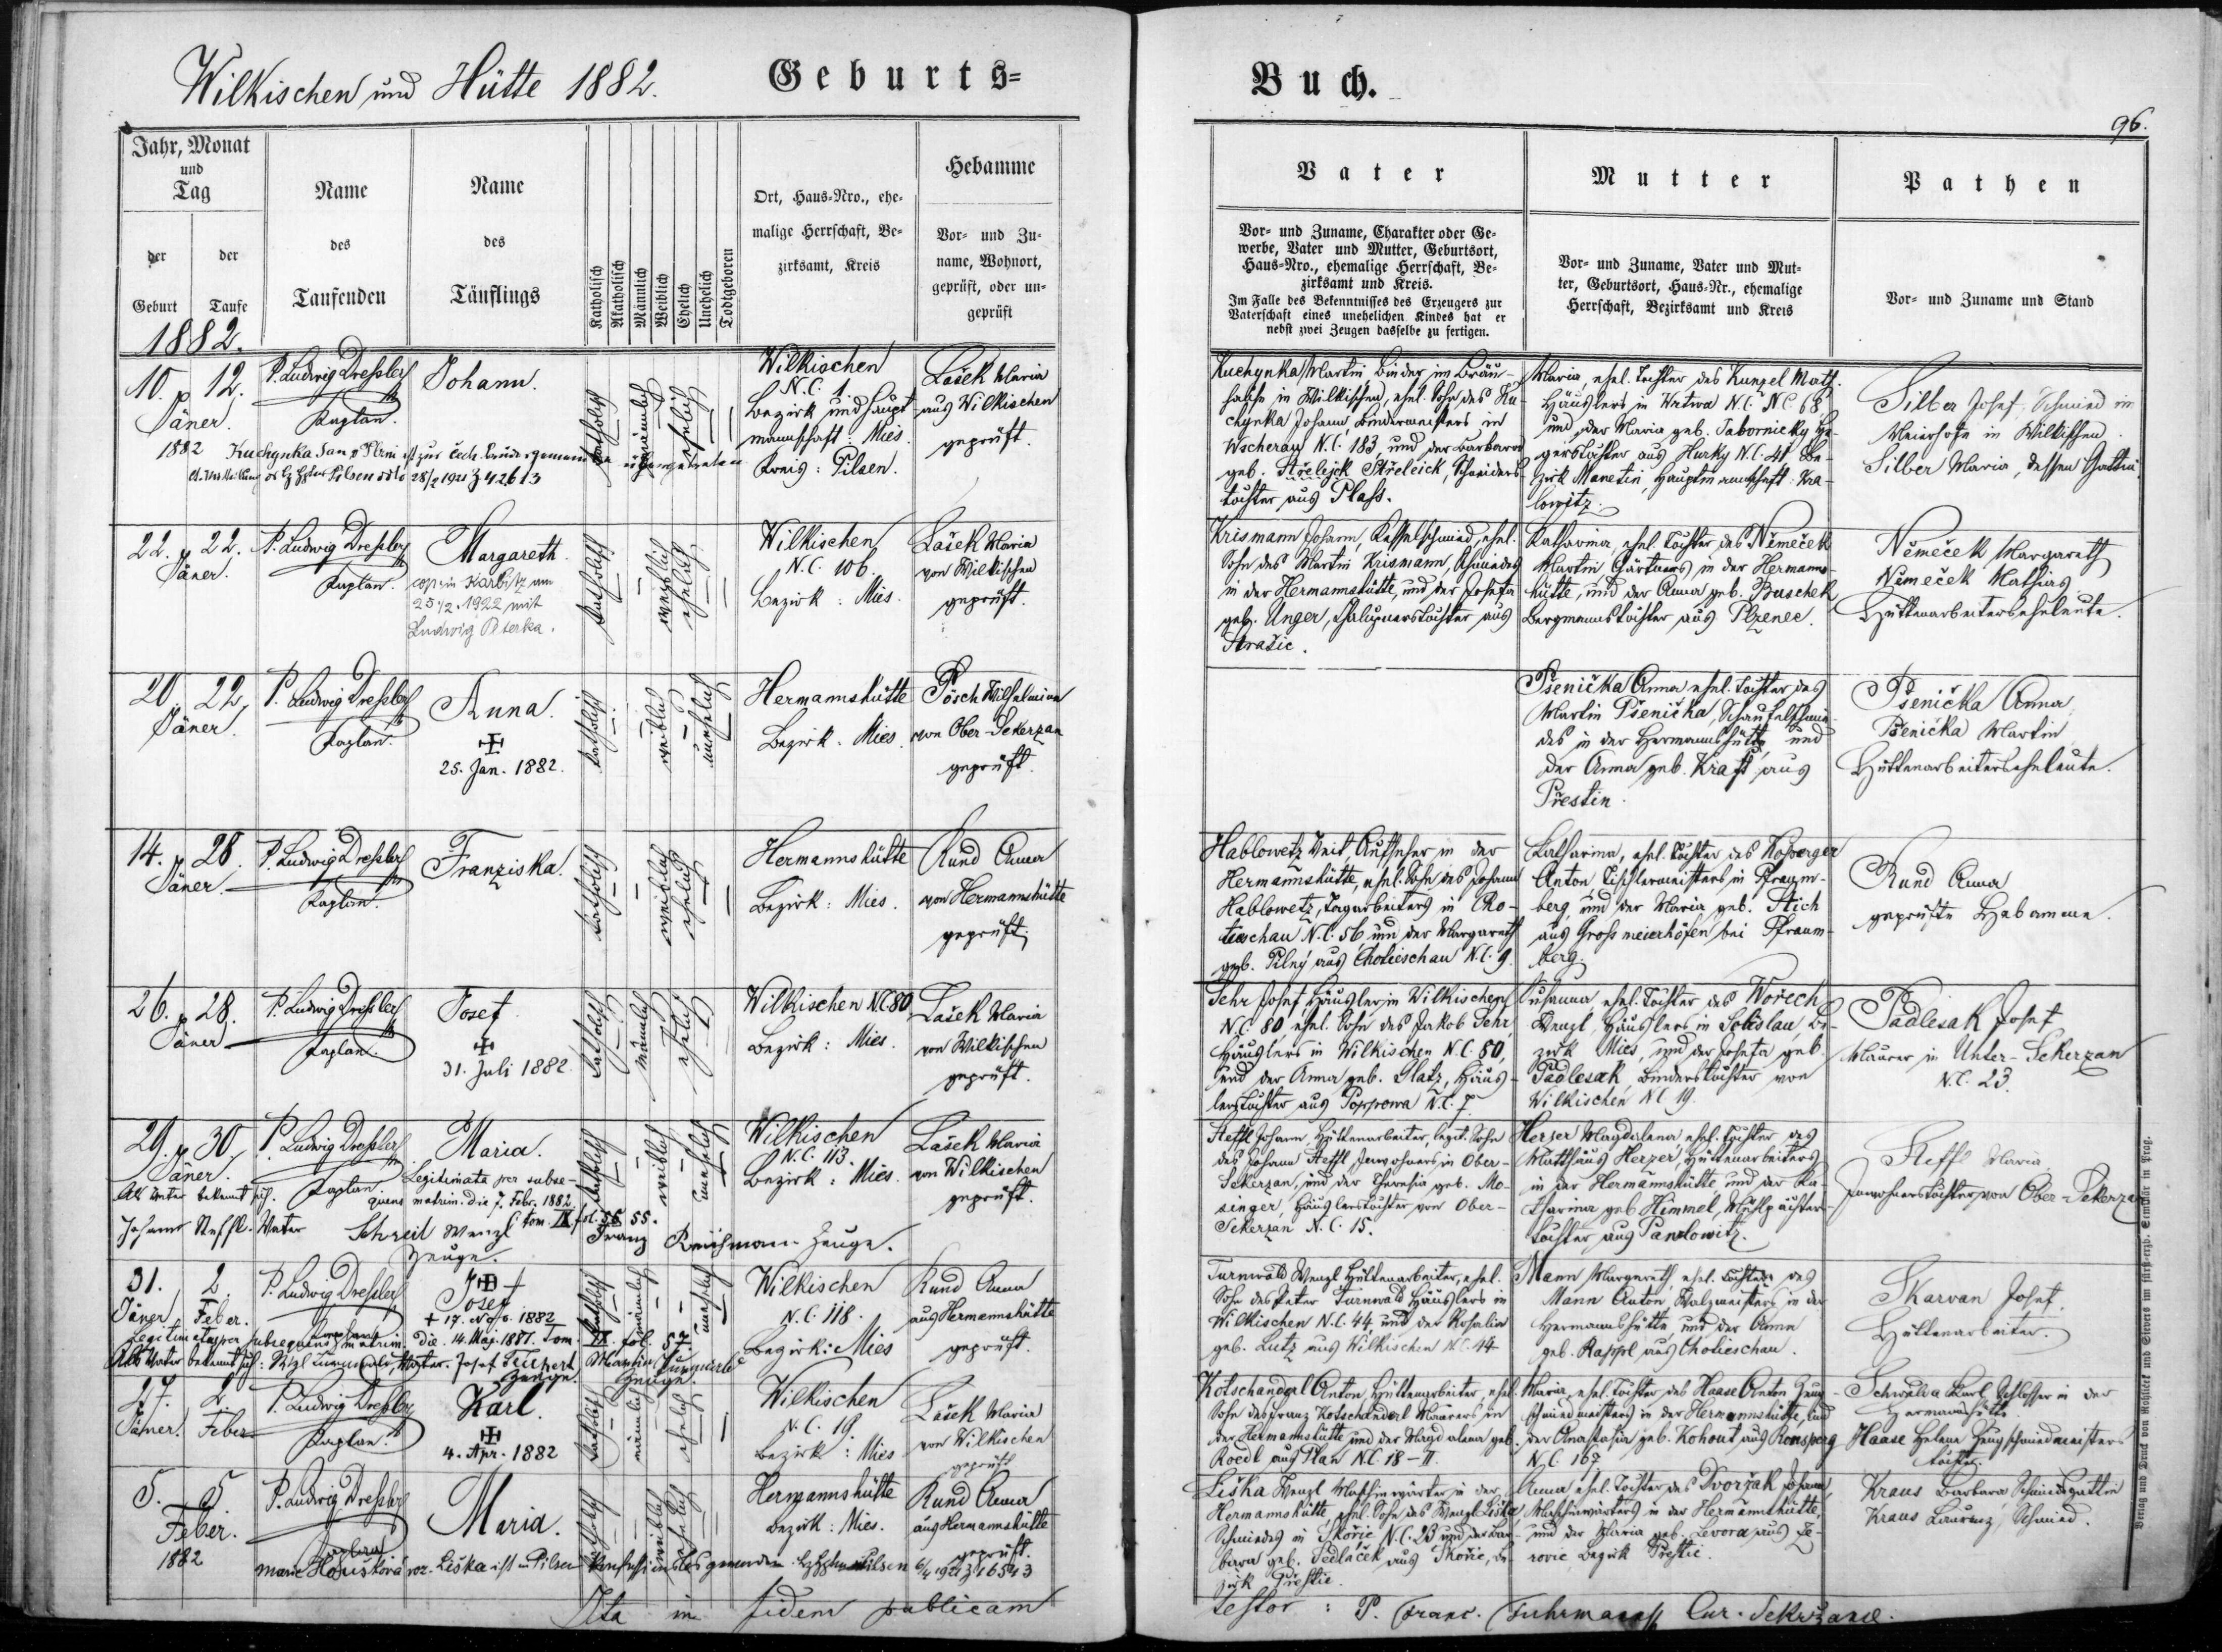 Wilkischen und Hütte 1882. Geburts=
Jahr, Monat
und
Tag
der
Geburt
der
Taufe
Name
des
Taufenden
Name
des
Täuflings
Katholisch
Akatholisch
Männlich
Weiblich
Ehelich
Unehelich
Todtgeboren
Ort, Haus=Nro., ehe=
malige Herrschaft, Be=
zirksamt, Kreis
Hebamme
Vor= und Zu=
name, Wohnort,
geprüft, oder un=
geprüft
1882.
10. 12.
Jäner.
1882
P. Ludwig Dressler
Kaplan.
Johann.
katholisch
männlich
ehelich
Wilkischen
N.C. 1
Bezirk und Haupt
mannschaft: Mies.
Kreis: Pilsen.
Lašek Maria
aus Wilkischen
geprüft.
Kuchynka Jan
28/2 1921 Z 42613
22. 22.
Jäner.
P. Ludwig Dressler
Kaplan.
Margareth.
cop. in Karbitz am
25/2. 1922 mit
Ludwig Peterka.
katholisch
weiblich
ehelich
Wilkischen
N.C. 106.
Bezirk: Mies.
Lašek Maria
von Wilkischen
geprüft.
20. 22.
Jäner.
P. Ludwig Dressler
Kaplan.
Anna.
25. Jan. 1882.
katholisch
weiblich
unehelich
Hermannshütte
Bezirk: Mies.
Pösch Wilhelmine
von Ober-Sekerzan
geprüft.
14. 28.
Jäner.
P. Ludwig Dressler
Kaplan.
Franziska.
katholisch
weiblich
ehelich
Hermannshütte
Bezirk: Mies.
Rund Anna
von Hermannshütte
geprüft.
26. 28.
Jäner
P. Ludwig Dressler
Kaplan.
Josef
31. Juli 1882.
katholisch
männlich
ehelich
Wilkischen N.C. 80
Bezirk: Mies.
Lašek Maria
von Wilkischen
geprüft.
29. 30.
Jäner.
P. Ludwig Dressler
Kaplan.
Maria.
Legitimata per subse-
quens matrim. die 7. Febr. 1882
tom. IX fol. 55.
katholisch
weiblich
unehelich
Wilkischen
N.C. 113.
Bezirk: Mies.
Lašek Maria
von Wilkischen
geprüft.
Als Vater bekennt sich.
Johann Steffl. Vater
Schreil Wenzl
Zeuge.
Franz Reichmann Zeuge.
31. 2.
Jäner. Feber.
P. Ludwig Dressler
Kaplan
Josef
† 17. 1882
Wilkischen
N.C. 118.
Bezirk: Mies
Rund Anna
aus Hermannshütte
geprüft.
Legitimatus per subsequens matrim. die 14. Maj. 1887. Tom. IX. fol. 57.
Als Vater bekennt sich: Vater. Josef Teichert
Zeuge. Zeuge.
27. 2.
Jäner. Feber
P. Ludwig Dressler
Kaplan.
Karl.
4. Apr. 1882
katholisch
männlich
ehelich
Wilkischen
N.C. 19.
Bezirk: Mies
Lašek Maria
von Wilkischen
geprüft
5. 5.
Feber.
1882
P. Ludwig Dressler
Kaplan
Maria.
katholisch
weiblich
ehelich
Hermannshütte
Bezirk: Mies.
Rund Anna
aus Hermannshütte
geprüft.
Marie Houšková roz. Liška ist in Pilsen konfessionslos geworden. Pilsen 6/4 1921 Z 16543
Ita in fidem publicam
Buch.
96.
Vater
Vor= und Zuname, Charakter oder Ge=
werbe, Vater und Mutter, Geburtsort,
Haus=Nro., ehemalige Herrschaft, Be=
zirksamt und Kreis.
Im Falle des Bekenntnisses des Erzeugers zur
Vaterschaft eines unehelichen Kindes hat er
nebst zwei Zeugen dasselbe zu fertigen.
Mutter
Vor= und Zuname, Vater und Mut=
ter, Geburtsort, Haus=Nr., ehemalige
Herrschaft, Bezirksamt und Kreis
Pathen
Vor= und Zuname und Stand
Kuchynka Martin Binder im Bräu-
hause in Wilkischen, ehel. Sohn des Ku-
chynka Johann Bindermeisters in
Wscherau N.C. 183, und der Barbara
geb. Střeleick, Schneiders-
tochter aus Plass.
Maria, ehel. Tochter des Kunzel Math.
Häuslers in Wrtwa N.C. 68,
und der Maria geb. Tabornicky
aus Hurky N.C. 41 Be-
zirk Manetin, Hauptmannschaft Kra-
lowitz.
Silber Josef, Schmied im
Meierhofe in Wilkischen.
Silber Maria, dessen Gattin
Krismann Johann, Kesselschmied, ehel.
Sohn des Martin Krismann, Schmiedes
in der Hermannshütte, und der Josefa
geb. Unger, Chalupnerstochter aus
Strašic.
Katharina, ehel. Tochter des Němeček
Martin Gärtners in der Hermanns-
hütte, und der Anna geb. Buschek
Bergmannstochter aus Plzenec.
Němeček Margareth
Němeček Mathias
Hüttenarbeiterseheleute.
Pšenička Anna ehel. Tochter des
Martin Pšenička, Schaufelschmie-
des in der Hermannshütte und
der Anna geb. Kraft aus
Přestin.
Pšenička Anna
Pšenička Martin
Hüttenarbeiterseheleute.
Hablowetz Veit, Aufseher in der
Hermannshütte, ehel. Sohn des Johann
Hablowetz, Tagarbeiters in Cho-
tieschau N.C. 56 und der Margareth
geb. Pilný aus Chotieschau N.C. 9.
Katharina, ehel. Tochter des Kosperger
Anton Tischlermeisters in Pfraum-
berg, und der Maria geb. Stich
aus Grossmeierhöfen bei Pfraum-
berg.
Rund Anna
geprüfte Hebamme.
Sehr Josef Häusler in Wilkischen
N.C. 80, ehel. Sohn des Jakob Sehr
Häuslers in Wilkischen N.C. 80,
und der Anna geb. Glatz, Häus-
lerstochter aus Poppowa N.C. 7.
Susanna ehel. Tochter des Wořech
Wenzl, Häuslers in Solislau, Be-
zirk Mies, und der Josefa geb.
Padlesak, Binderstochter von
Wilkischen N.C. 19.
Padlesak Josef
Maurer in Unter-Sekerzan
N.C. 23.
Steffl Johann, Hüttenarbeiter, legit. Sohn
des Johann Steffl Inwohners in Ober-
Sekerzan, und der Theresia geb. Mo-
singer, Häuslerstochter von Ober-
Sekerzan N.C. 15.
Herzer Magdalena, ehel. Tochter des
Matthäus Herzer, Hüttenarbeiters
in der Hermannshütte und der Ka-
tharina geb. Himmel, Mühlpächters-
tochter aus Panzlowitz.
Steffl Maria,
Inwohnerstochter von Ober-Sekerzan
Turnwald Wenzl Hüttenarbeiter, ehel.
Sohn des Peter Turnwald Häuslers in
Wilkischen N.C. 44 und der Rosalia
geb. Lutz aus Wilkischen N.C. 44
Mann Margareth, ehel. Tochter des
Mann Anton, Walzmeisters in der
Hermannshütte, und der Anna
geb. Rappl aus Chotieschau.
Skarvan Josef,
Hüttenarbeiter.
Kotschanderl Anton, Hüttenarbeiter, ehel.
Sohn des Franz Kotschanderl Maurers in
der Hermannshütte und der Magdalena geb.
Roedl aus Plan N.C. 18-II.
Maria, ehel. Tochter des Haase Anton Zeug-
schmiedmeisters in der Hermannshütte, und
der Anastasia geb. Kohout aus Ronsperg
N.C. 167.
Karl, Schlosser in der
Hermannshütte.
Haase Helena Zeugschmiedmeisters
tochter.
Liška Wenzl Maschinwärter in der
Hermannshütte, ehel. Sohn des Wenzl Liška
Schmiedes in Skořic N.C. 23 und der Bar-
bara geb. Sedlaček aus Skořic, Be-
zirk Přestic.
Anna, ehel. Tochter des Dvořak Johann,
Maschinwärters in der Hermannshütte,
und der Maria geb. Levora aus
Bezirk Přestic.
Kraus Barbara Schmiedsgattin
Kraus Laurenz, Schmied.
testor: P. Franc. Fuhrmann Cur. Sekržane.
Verlag und Druck von Rohliček und Sievers im fürst=erzb. Seminär in Prag.